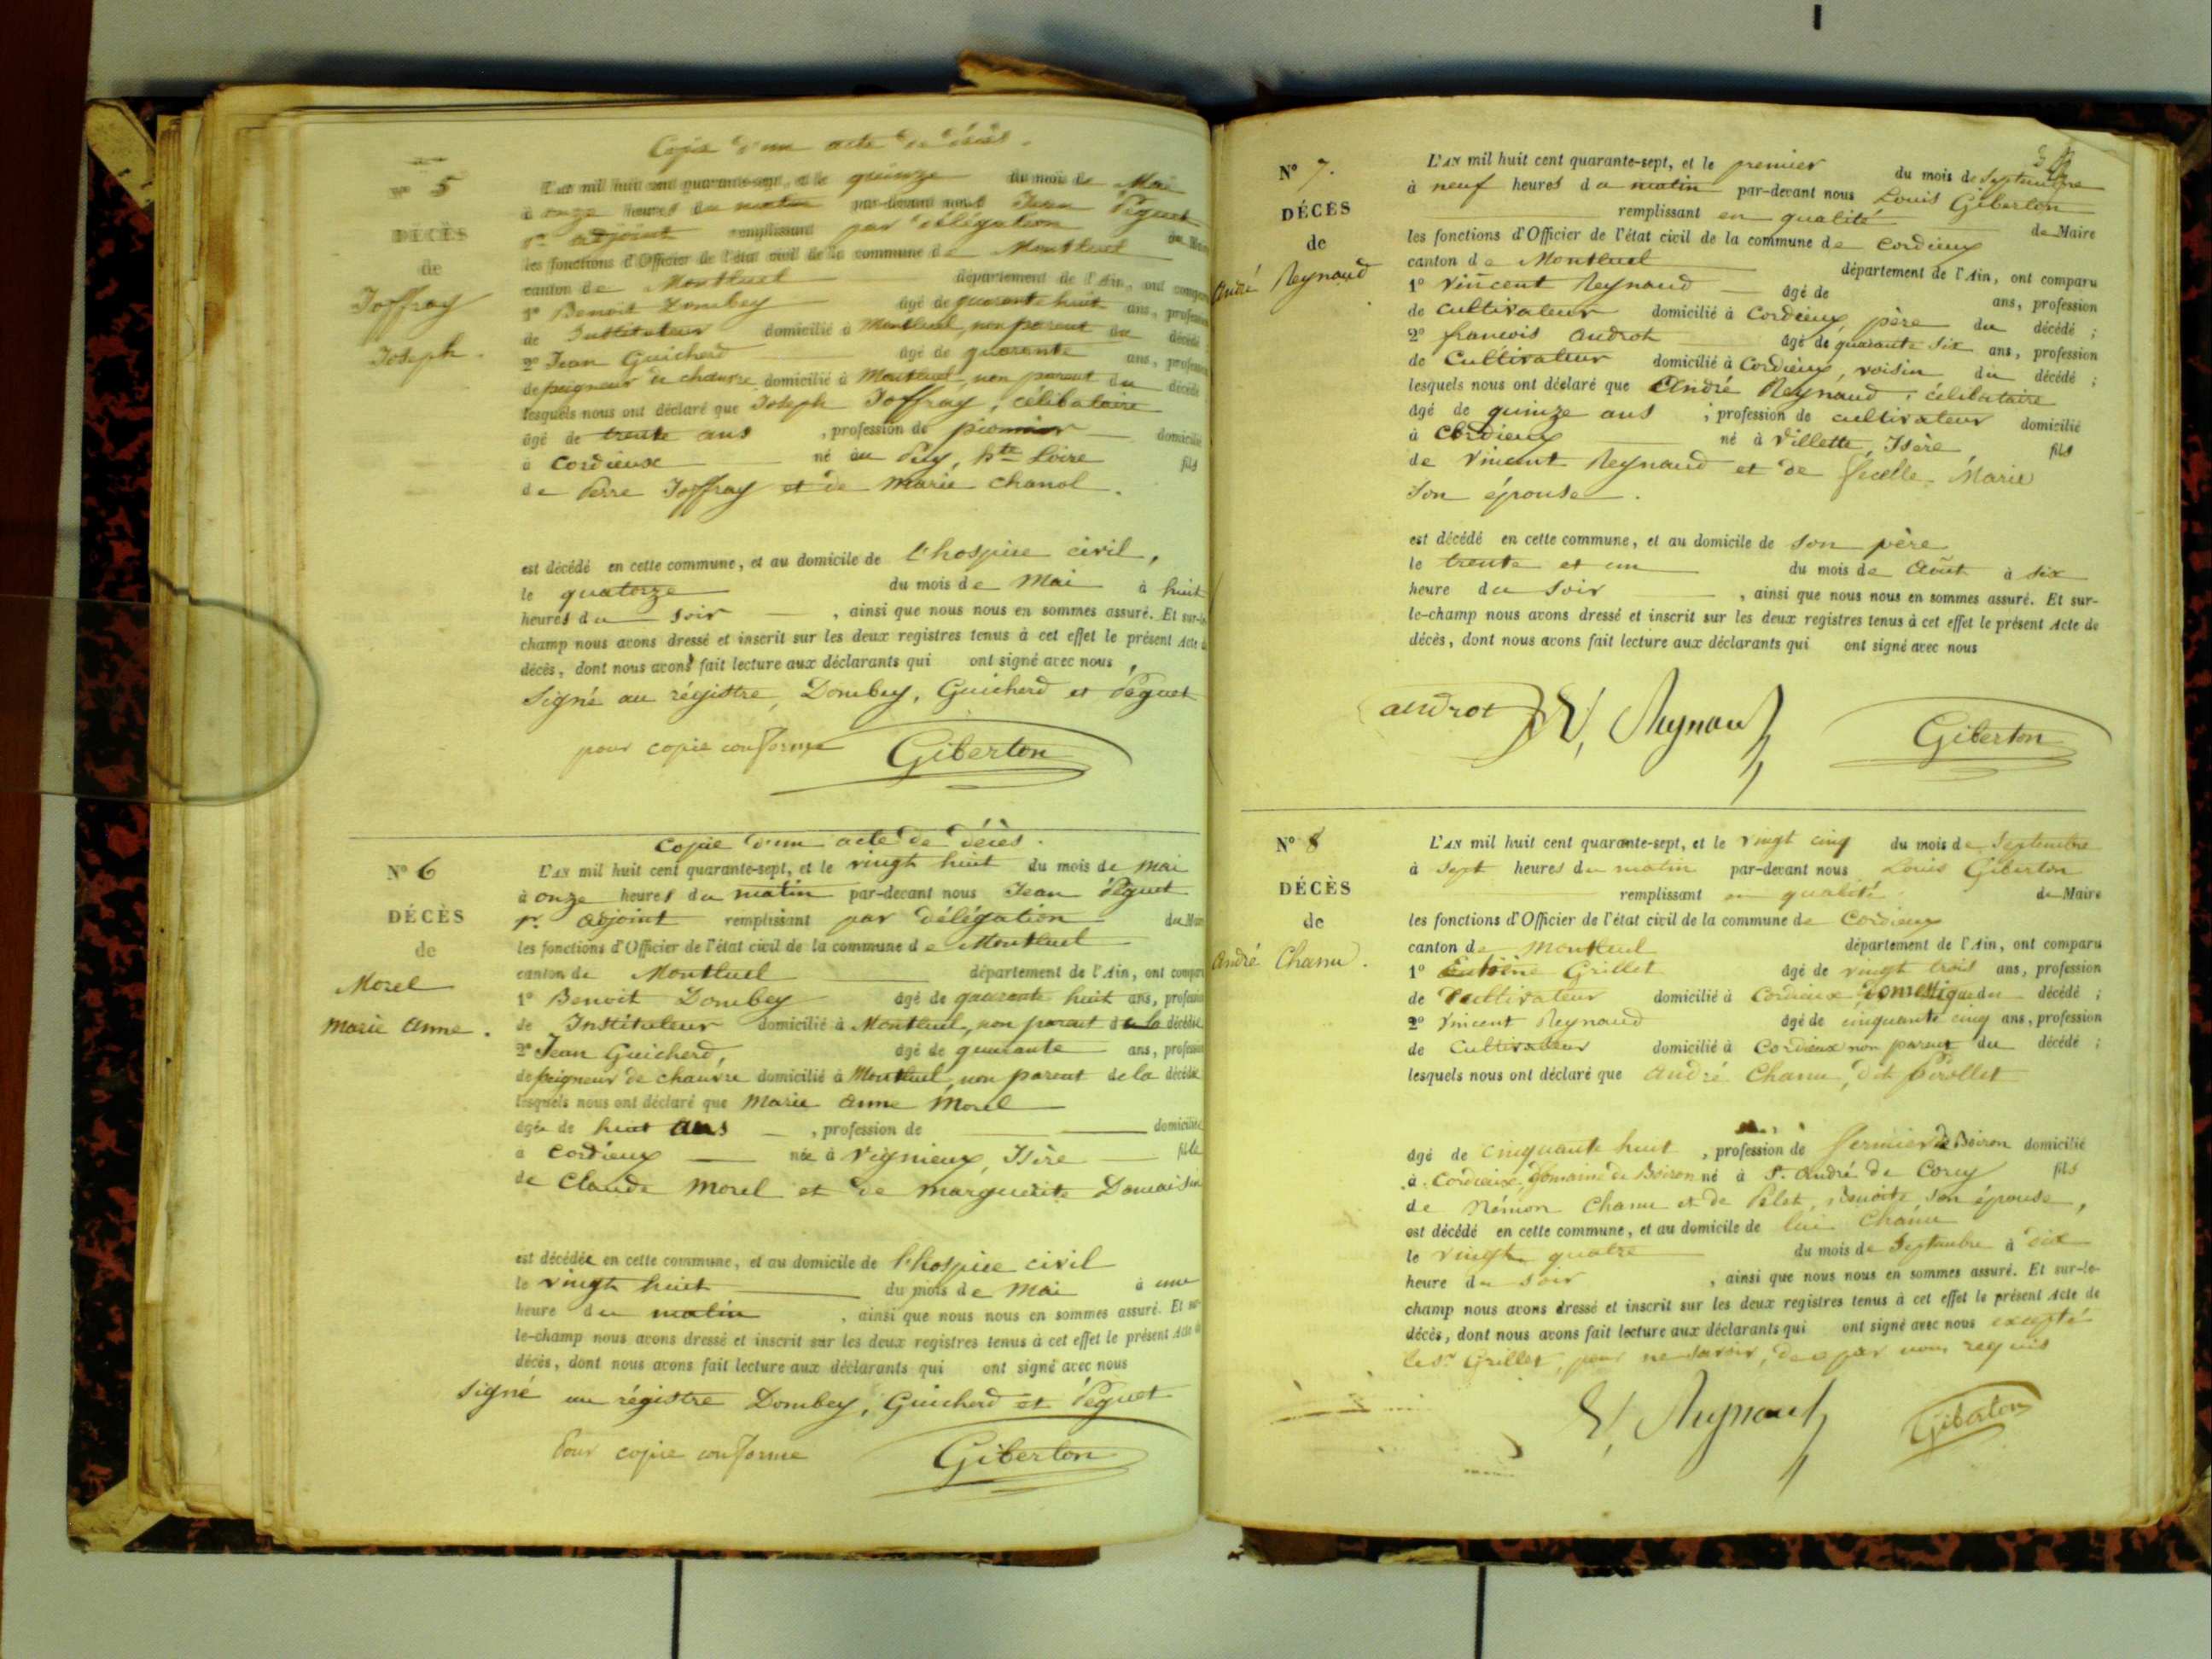 Copie d'un acte de décès.
N° 5
DÉCÈS
de
Joffray
Joseph.
L'AN mil huit cent quarante-sept, et le quinze du mois de Mai
à onze heures du matin par-devant nous Jean Péguet
1er adjoint remplissant par délégation du Maire
les fonctions d'Officier de l'état civil de la commune de Montluel
canton de Montluel département de l'Ain, ont comparu
1° Benoit Dombey âgé de quarante huit ans, profession
de Instituteur domicilié à Montluel, non parent du décédé
2° Jean Guicherd âgé de quarante ans, profession
de peigneur de chanvre domicilié à Montluel, non parent du décédé
lesquels nous ont déclaré que Joseph Joffray, célibataire
âgé de trente ans, profession de pionnier domicilié
à Cordieux né au Puy, hte Loire fils
de Pierre Joffray et de Marie Chanol.
est décédé en cette commune, et au domicile de l'hospice civil,
le quatorze du mois de Mai à huit
heures du soir, ainsi que nous nous en sommes assuré. Et sur-le-
champ nous avons dressé et inscrit sur les deux registres tenus à cet effet le présent Acte de
décès, dont nous avons fait lecture aux déclarants qui ont signé avec nous,
Signé au régistre, Dombey, Guicherd et Péguet
pour copie conforme Giberton
Copie d'un acte de décès.
N° 6
DÉCÈS
de
Morel
Marie Anne.
L'AN mil huit cent quarante-sept, et le vingt huit du mois de mai
à onze heures du matin par-devant nous Jean Péguet
1er adjoint remplissant par délégation du Maire
les fonctions d'Officier de l'état civil de la commune de Montluel
canton de Montluel département de l'Ain, ont comparu
1° Benoit Dombey âgé de quarante huit ans, profession
de Instituteur domicilié à Montluel, non parent de la décédée
2° Jean Guicherd, âgé de quarante ans, profession
de peigneur de chanvre domicilié à Montluel, non parent de la décédée
lesquels nous ont déclaré que Marie Anne Morel
âgée de huit ans, profession de domiciliée
à Cordieux née à Vignieux, Isère fille
de Claude Morel et de Marguerite Domaisin
est décédée en cette commune, et au domicile de l'hospice civil
le vingt huit du mois de Mai à une
heure du matin, ainsi que nous nous en sommes assuré. Et sur-
le-champ nous avons dressé et inscrit sur les deux registres tenus à cet effet le présent Acte de
décès, dont nous avons fait lecture aux déclarants qui ont signé avec nous
signé au régistre Dombey, Guicherd et Péguet
Pour copie conforme Giberton
N° 7.
DÉCÈS
de
André Reynaud
L'AN mil huit cent quarante-sept, et le premier du mois de Septembre
à neuf heures du matin par-devant nous Louis Giberton
remplissant en qualité de Maire
les fonctions d'Officier de l'état civil de la commune de Cordieux
canton de Montluel département de l'Ain, ont comparu
1° Vincent Reynaud âgé de ans, profession
de cultivateur domicilié à Cordieux père du décédé;
2° francois Audrot âgé de quarante six ans, profession
de Cultivateur domicilié à Cordieux, voisin du décédé;
lesquels nous ont déclaré que André Reynaud, célibataire
âgé de quinze ans; profession de cultivateur domicilié
à Cordieux né à Villette, Isère, fils
de Vincent Reynaud et de Marie
son épouse.
est décédé en cette commune, et au domicile de son père
le trente et un du mois de Août à six
heure du soir, ainsi que nous nous en sommes assuré. Et sur-
le-champ nous avons dressé et inscrit sur les deux registres tenus à cet effet le présent Acte de
décès, dont nous avons fait lecture aux déclarants qui ont signé avec nous
audrot V, Reynaud Giberton
N° 8
DÉCÈS
de
André Chanu.
L'AN mil huit cent quarante-sept, et le vingt cinq du mois de Septembre
à sept heures du matin par-devant nous Louis Giberton
remplissant en qualité de Maire
les fonctions d'Officier de l'état civil de la commune de Cordieux
canton de Montluel département de l'Ain, ont comparu
1° Antoine Grillet âgé de vingt trois ans, profession
de Cultivateur domicilié à Cordieux Domestique du décédé;
2° Vincent Reynaud âgé de cinquante cinq ans, profession
de Cultivateur domicilié à Cordieux non parent du décédé;
lesquels nous ont déclaré que André Chanu, dit
âgé de cinquante huit, profession de fermier de Boiron domicilié
à Cordieux, domaine du Boiron né à St. André de Corcy fils
de Chanu et de Pelet, Benoite son épouse,
est décédé en cette commune, et au domicile de lui Chanu
le vingt quatre du mois de Septembre à dix
heure du soir, ainsi que nous nous en sommes assuré. Et sur-le-
champ nous avons dressé et inscrit sur les deux registres tenus à cet effet le présent Acte de
décès, dont nous avons fait lecture aux déclarants qui ont signé avec nous excepté
le Sr Grillet, pour ne savoir, de ce par nous requis
V, Reynaud Giberton